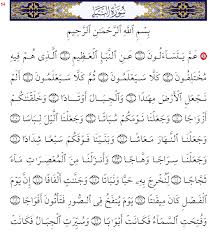 سُورَةُ النَّبَإِ
بِسْمِ ٱللَّهِ ٱلرَّحْمَٰنِ ٱلرَّحِيمِ
عَمَّ يَتَسَآءَلُونَ ۝ عَنِ ٱلنَّبَإِ ٱلْعَظِيمِ ۝ ٱلَّذِى هُمْ فِيهِ
مُخْتَلِفُونَ ۝ كَلَّا سَيَعْلَمُونَ ۝ ثُمَّ كَلَّا سَيَعْلَمُونَ ۝ أَلَمْ
نَجْعَلِ ٱلْأَرْضَ مِهَٰدًا ۝ وَٱلْجِبَالَ أَوْتَادًا ۝ وَخَلَقْنَٰكُمْ
أَزْوَٰجًا ۝ وَجَعَلْنَا نَوْمَكُمْ سُبَاتًا ۝ وَجَعَلْنَا ٱلَّيْلَ لِبَاسًا ۝
وَجَعَلْنَا ٱلنَّهَارَ مَعَاشًا ۝ وَبَنَيْنَا فَوْقَكُمْ سَبْعًا شِدَادًا ۝
وَجَعَلْنَا سِرَاجًا وَهَّاجًا ۝ وَأَنزَلْنَا مِنَ ٱلْمُعْصِرَٰتِ مَآءً
ثَجَّاجًا ۝ لِّنُخْرِجَ بِهِۦ حَبًّا وَنَبَاتًا ۝ وَجَنَّٰتٍ أَلْفَافًا ۝ إِنَّ يَوْمَ
ٱلْفَصْلِ كَانَ مِيقَٰتًا ۝ يَوْمَ يُنفَخُ فِى ٱلصُّورِ فَتَأْتُونَ أَفْوَاجًا ۝
وَفُتِحَتِ ٱلسَّمَآءُ فَكَانَتْ أَبْوَٰبًا ۝ وَسُيِّرَتِ ٱلْجِبَالُ فَكَانَتْ